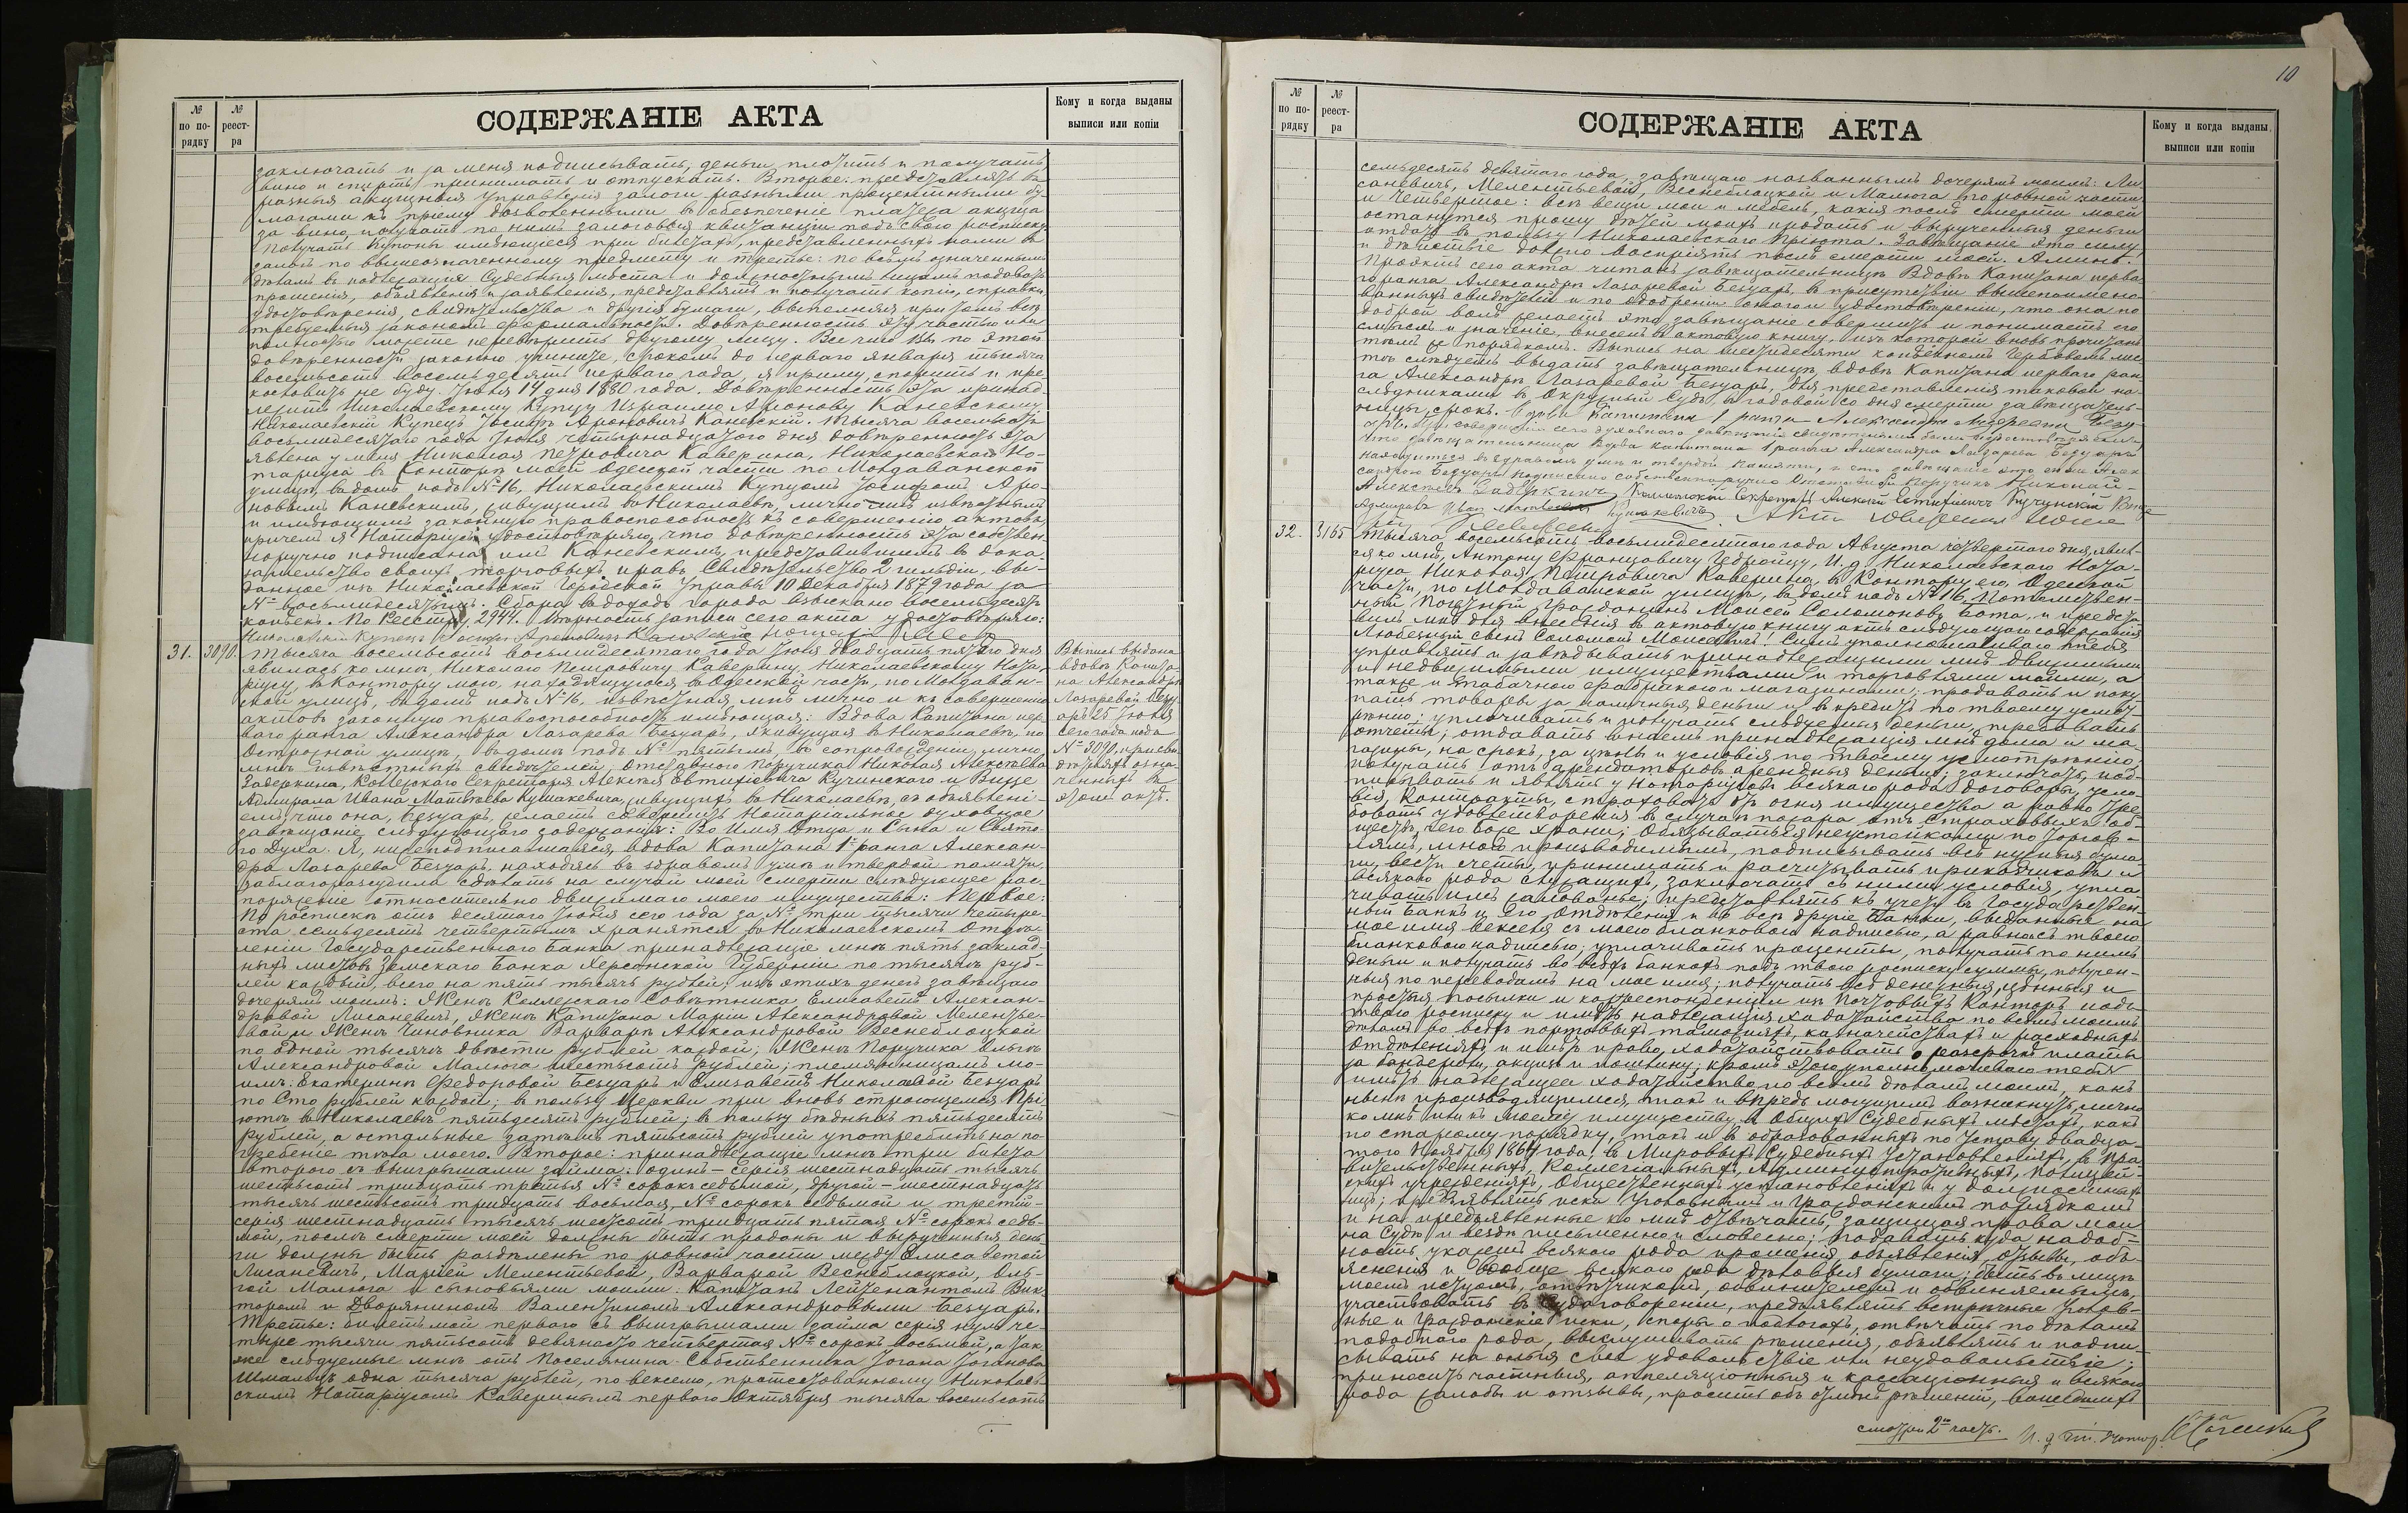 №
по по-
рядку
№
реест-
ра
СОДЕРЖАНІЕ АКТА
Кому и когда выданы
выписи или копіи
заключать и за меня подписывать, деньги платить и получать
вино и спиртъ принимать и отпускать. Второе: представлять въ
разныя акцизныя Управленія залоги разными процентными бу-
магами къ пріему дозволенными въ обезпеченіе платежа акциза
за вино, получать по нимъ залоговыя квитанціи подъ свою росписку
получать купоны имѣющіеся при билетахъ, представленныхъ нами въ
залогъ по вышеозначенному предмету и третье: по всѣмъ означеннымъ
дѣламъ въ подлежащія Судебныя мѣста и должностнымъ лицамъ подавать
прошенія, объявленія и заявленія, представлять и получать копіи, справки,
удостовѣренія, свидѣтельства и другія бумаги, выполняя при томъ всѣ
требуемыя закономъ формальности. Довѣренность эту частью или
полностью можете перевѣрить другому лицу. Все что Вы по этой
довѣренности законно учините, срокомъ до перваго Января тысяча
восемьсотъ восемьдесятъ перваго года, я приму, спорить и пре-
кословить не буду. Іюня 14 дня 1880 года. Довѣренность эта принад-
лежитъ Николаевскому Купцу Израилю Аронову Каневскому.
Николаевскій Купецъ Іосифъ Ароновичъ Каневскій. Тысяча восемьсотъ
восьмидесятаго года Іюня четырнадцатаго дня довѣренность эта
явлена у меня Николая Петровича Каверина, Николаевскаго Но-
таріуса въ Конторѣ моей Одесской части по Молдаванской
улицѣ, въ домѣ подъ № 16, Николаевскимъ Купцомъ Іосифомъ Аро-
новымъ Каневскимъ, живущимъ въ Николаевѣ, лично мнѣ извѣстнымъ
и имѣющимъ законную правоспособность къ совершенію актовъ
причемъ я Нотаріусъ удостовѣряю, что довѣренность эта собствен-
норучно подписана имъ Каневскимъ, представившимъ въ дока-
зательство своихъ торговыхъ правъ Свидѣтельство 2 гильдіи, вы-
данное изъ Николаевской Городской Управы 10 Декабря 1879 года за
№ восьмидесятымъ. Сбора въ доходъ города взыскано восемьдесятъ
копѣекъ. По Реестру 2944. Вѣрность записи сего акта удостовѣряю:
Николаевскій Купецъ Іосифъ Ароновичъ Каневскій
31.
3090.
Тысяча восемьсотъ восьмидесятаго года Іюня двадцать пятаго дня
явилась ко мнѣ, Николаю Петровичу Каверину, Николаевскому Нота-
ріусу, въ Контору мою, находящуюся въ Одесской части, по Молдаван-
ской улицѣ, въ домѣ подъ № 16, извѣстная мнѣ лично и къ совершенію
актовъ законную правоспособность имѣющая: Вдова Капитана пер-
ваго ранга Александра Лазарева Безуаръ, живущая въ Николаевѣ, по
Острожной улицѣ, въ домѣ подъ № пятымъ, въ сопровожденіи лично
мнѣ извѣстныхъ свидѣтелей, отставного Поручика Николая Алексѣева
Задеркина, Коллежскаго Секретаря Алексѣя Евтихіевича Кучинскаго и Вице
Адмирала Ивана Матвѣева Кушакевича, живущихъ въ Николаевѣ, съ объявлені-
емъ, что она, Безуаръ, желаетъ совершить нотаріальное духовное
завѣщаніе слѣдующаго содержанія: Во Имя Отца и Сына и Свято-
го Духа. Я, нижеподписавшаяся, вдова Капитана 1го ранга Алексан-
дра Лазарева Безуаръ, находясь въ здравомъ умѣ и твердой памяти,
заблагоразсудила сдѣлать на случай моей смерти слѣдующее рас-
поряженіе относительно движимаго моего имущества: Первое:
По роспискѣ отъ десятаго Іюня сего года за № три тысячи четыре-
ста семьдесятъ четвертымъ хранятся въ Николаевскомъ Отдѣ-
леніи Государственнаго Банка принадлежащіе мнѣ пять заклад-
ныхъ листовъ Земскаго Банка Херсонской Губерніи по тысячѣ руб-
лей каждый, всего на пять тысячъ рублей; изъ этихъ денегъ завѣщаю
дочерямъ моимъ: Женѣ Коллежскаго Совѣтника Елисаветѣ Алексан-
дровой Лисаневичъ, Женѣ Капитана Маріи Александровой Меленть-
вой и Женѣ Чиновника Варварѣ Александровой Веснеблоцкой
по одной тысячѣ двѣсти рублей каждой; Женѣ Поручика Ольгѣ
Александровой Малюга шестьсотъ рублей; племянницамъ мо-
имъ: Екатеринѣ Федоровой Безуаръ и Елизаветѣ Николаевой Безуаръ
по Сто рублей каждой; въ пользу Церкви при вновь строющемся Прі-
ютѣ въ Николаевѣ пятьдесятъ рублей; въ пользу бѣдныхъ пятьдесятъ
рублей, а остальные затѣмъ пятьсотъ рублей употребить на по-
гребеніе тѣла моего. Второе: принадлежащіе мнѣ три билета
втораго съ выигрышами займа: одинъ – серія шестнадцать тысячъ
шестьсотъ тридцать третья № сорокъ седьмой, другой – шестнадцать
тысячъ шестьсотъ тридцать восьмая, № сорокъ седьмой и третій –
серія шестнадцать тысячъ шестьсотъ тридцать пятая № сорокъ седь-
мой, послѣ смерти моей должны быть проданы и вырученныя день-
ги должны быть раздѣлены по ровной части между Елисаветой
Лисаневичъ, Маріей Мелентьевой, Варварой Веснеблоцкой, Оль-
гой Малюга и сыновьями моими: Капитанъ Лейтенантомъ Вик-
торомъ и Дворяниномъ Валентиномъ Александровыми Безуаръ.
Третье: билетъ мой перваго съ выигрышами займа серія нуль че-
тыре тысячи пятьсотъ девяносто четвертая № сорокъ восьмой, а так-
же слѣдуемые мнѣ отъ Поселянина Собственника Іогана Іоганова
Шмальцъ одна тысяча рублей, по векселю, протестованному Николаев-
скимъ Нотаріусомъ Каверинымъ перваго Октября тысяча восемьсотъ
Выпись выдана
вдовѣ Капита-
на Александрѣ
Лазаревой Безу-
аръ 25 Іюня
сего года подъ
№ 3090, при сви-
дѣтеляхъ озна-
ченныхъ въ
этомъ актѣ.
10
№
по по-
рядку
№
реест-
ра
СОДЕРЖАНІЕ АКТА
Кому и когда выданы
выписи или копіи
семьдесятъ девятаго года, завѣщаю названнымъ дочерямъ моимъ: Ли-
саневичъ, Мелентьевой, Веснеблоцкой и Малюга по ровной части
и Четвертое: всѣ вещи мои и мебель, какія послѣ смерти моей
останутся прошу дѣтей моихъ продать и вырученныя деньги
отдать въ пользу Николаевскаго Пріюта. Завѣщаніе это силу
и дѣйствіе должно воспріять послѣ смерти моей. Аминь.
Проэктъ сего акта читанъ завѣщательницѣ Вдовѣ Капитана перва-
го ранга Александрѣ Лазаревой Безуаръ, въ присутствіи вышепоимено-
ванныхъ свидѣтелей и по одобреніи онаго и удостовѣреніи, что она по
доброй волѣ желаетъ это завѣщаніе совершить и понимаетъ его
смыслъ и значеніе, внесенъ въ актовую книгу, изъ которой вновь прочитанъ
тѣмъ же порядкомъ. Выпись на шестидесяти копѣечномъ гербовомъ лис-
тѣ слѣдуетъ выдать завѣщательницѣ, вдовѣ Капитана перваго ран-
га Александрѣ Лазаревой Безуаръ, для представленія таковой на-
слѣдниками въ Окружный Судъ въ годовой со дня смерти завѣщатель-
ницы срокъ. Вдова Капитана 1 ранга Александра Лазарева Безу-
аръ. При совершеніи сего духовнаго завѣщанія свидѣтелями были и удостовѣряемъ
что завѣщательница вдова капитана 1 ранга Александра Лазарева Безуаръ
находится въ здравомъ умѣ и твердой памяти, и что завѣщаніе это ею Алек-
сандрою Безуаръ подписано собственноручно Отставной Поручикъ Николай
Алексѣевъ Задеркинъ Коллежскій Секретарь Алексѣй Евтихіевичъ Кучинскій Вице
Адмиралъ Иванъ Матвѣевъ Кушакевичъ
32.
3165
Тысяча восемьсотъ восьмидесятаго года Августа четвертаго дня, явил-
ся ко мнѣ, Антону Францовичу Цедройцу, И. д. Николаевскаго Нота-
ріуса Николая Петровича Каверина, въ Контору его, Одесской
части, по Молдаванской улицѣ, въ домѣ подъ № 16, Потомствен-
ный Почетный Гражданинъ Моисей Соломоновъ Ботя, и предста-
вилъ мнѣ для внесенія въ актовую книгу актъ слѣдующаго содержанія
Любезный сынъ Соломонъ Моисеевичъ! Симъ уполномачиваю тебя
управлять и завѣдывать принадлежащими мнѣ движимыми
и недвижимыми имуществами и торговлями моими, а
также и табачною фабрикою и магазинами; продавать и поку-
пать товары за наличныя деньги и въ кредитъ по твоему усмот-
рѣнію; уплачивать и получать слѣдуемыя деньги, требовать
отчеты; отдавать въ наемъ принадлежащія мнѣ дома и ма-
газины, на срокъ, за цѣны и условія по твоему усмотрѣнію,
получать отъ арендаторовъ арендныя деньги; заключать, под-
писывать и являть у Нотаріусовъ всякаго рода договоры, усло-
вія, контракты, страховать отъ огня имущества а равно тре-
бовать удовлетворенія въ случаѣ пожара отъ Страховыхъ об-
ществъ, чего Боже храни; обязываться неустойками по торгов-
лямъ, мною производимымъ, подписывать всѣ нужныя бума-
ги, вести счеты, принимать и расчитывать прикащиковъ и
всякаго рода служащихъ, заключать съ ними условія, упла-
чивать имъ жалованье; представлять къ учету въ Государствен-
ный Банкъ и Его Отдѣленія и во всѣ другіе Банки, выданные на
мое имя векселя съ моею бланковою надписью, а равно съ твоею
бланковою надписью; уплачивать проценты, получать по нимъ
деньги и получать во всѣхъ банкахъ подъ твою росписку суммы, получен-
ныя по переводамъ на мое имя; получать всѣ денежныя, цѣнныя и
простыя посылки и корреспонденціи изъ Почтовыхъ Конторъ подъ
твою росписку и имѣть надлежащія ходатайства по всѣмъ моимъ
дѣламъ во всѣхъ портовыхъ таможняхъ, казначействахъ и расходныхъ
отдѣленіяхъ и имѣть право ходатайствовать о разсрочкѣ платы
за бандероли, акцизъ и пошлину; кромѣ того уполномачиваю тебя
имѣть надлежащее ходатайство по всѣмъ дѣламъ моимъ, какъ
нынѣ производящимся, такъ и впредь могущимъ возникнуть, лично
ко мнѣ или къ моему имуществу въ Общихъ Судебныхъ мѣстахъ, какъ
по старому порядку, такъ и въ образованныхъ по Уставу двадца-
таго Ноября 1864 года, въ Мировыхъ Судебныхъ Установленіяхъ, въ Пра-
вительственныхъ, Коллегіальныхъ, Административныхъ, Полицей-
скихъ учрежденіяхъ, Общественныхъ установленіяхъ и у должностныхъ
лицъ; предъявлять иски Уголовнымъ и Гражданскимъ порядкомъ
и на предъявленные ко мнѣ отвѣчать, защищая права мои
на Судѣ и вездѣ письменно и словесно; подавать куда надоб-
ность укажетъ всякаго рода прошенія, объявленія, отзывы, объ-
ясненія и вообще всякаго рода дѣловыя бумаги; быть въ лицѣ
моемъ истцомъ, отвѣтчикомъ, обвинителемъ и обвиняемымъ,
участвовать въ судоговореніи, предъявлять встрѣчные Уголов-
ные и Гражданскіе иски, споры о подлогахъ, отвѣчать по дѣламъ
подобнаго рода, выслушивать рѣшенія, объявлять и подпи-
сывать на оныя свое удовольствіе или неудовольствіе;
приносить частныя, аппеляціонныя и кассаціонныя и всякаго
рода жалобы и отзывы, просить объ отмѣнѣ рѣшеній, вошедшихъ
смотри 2ю часть.